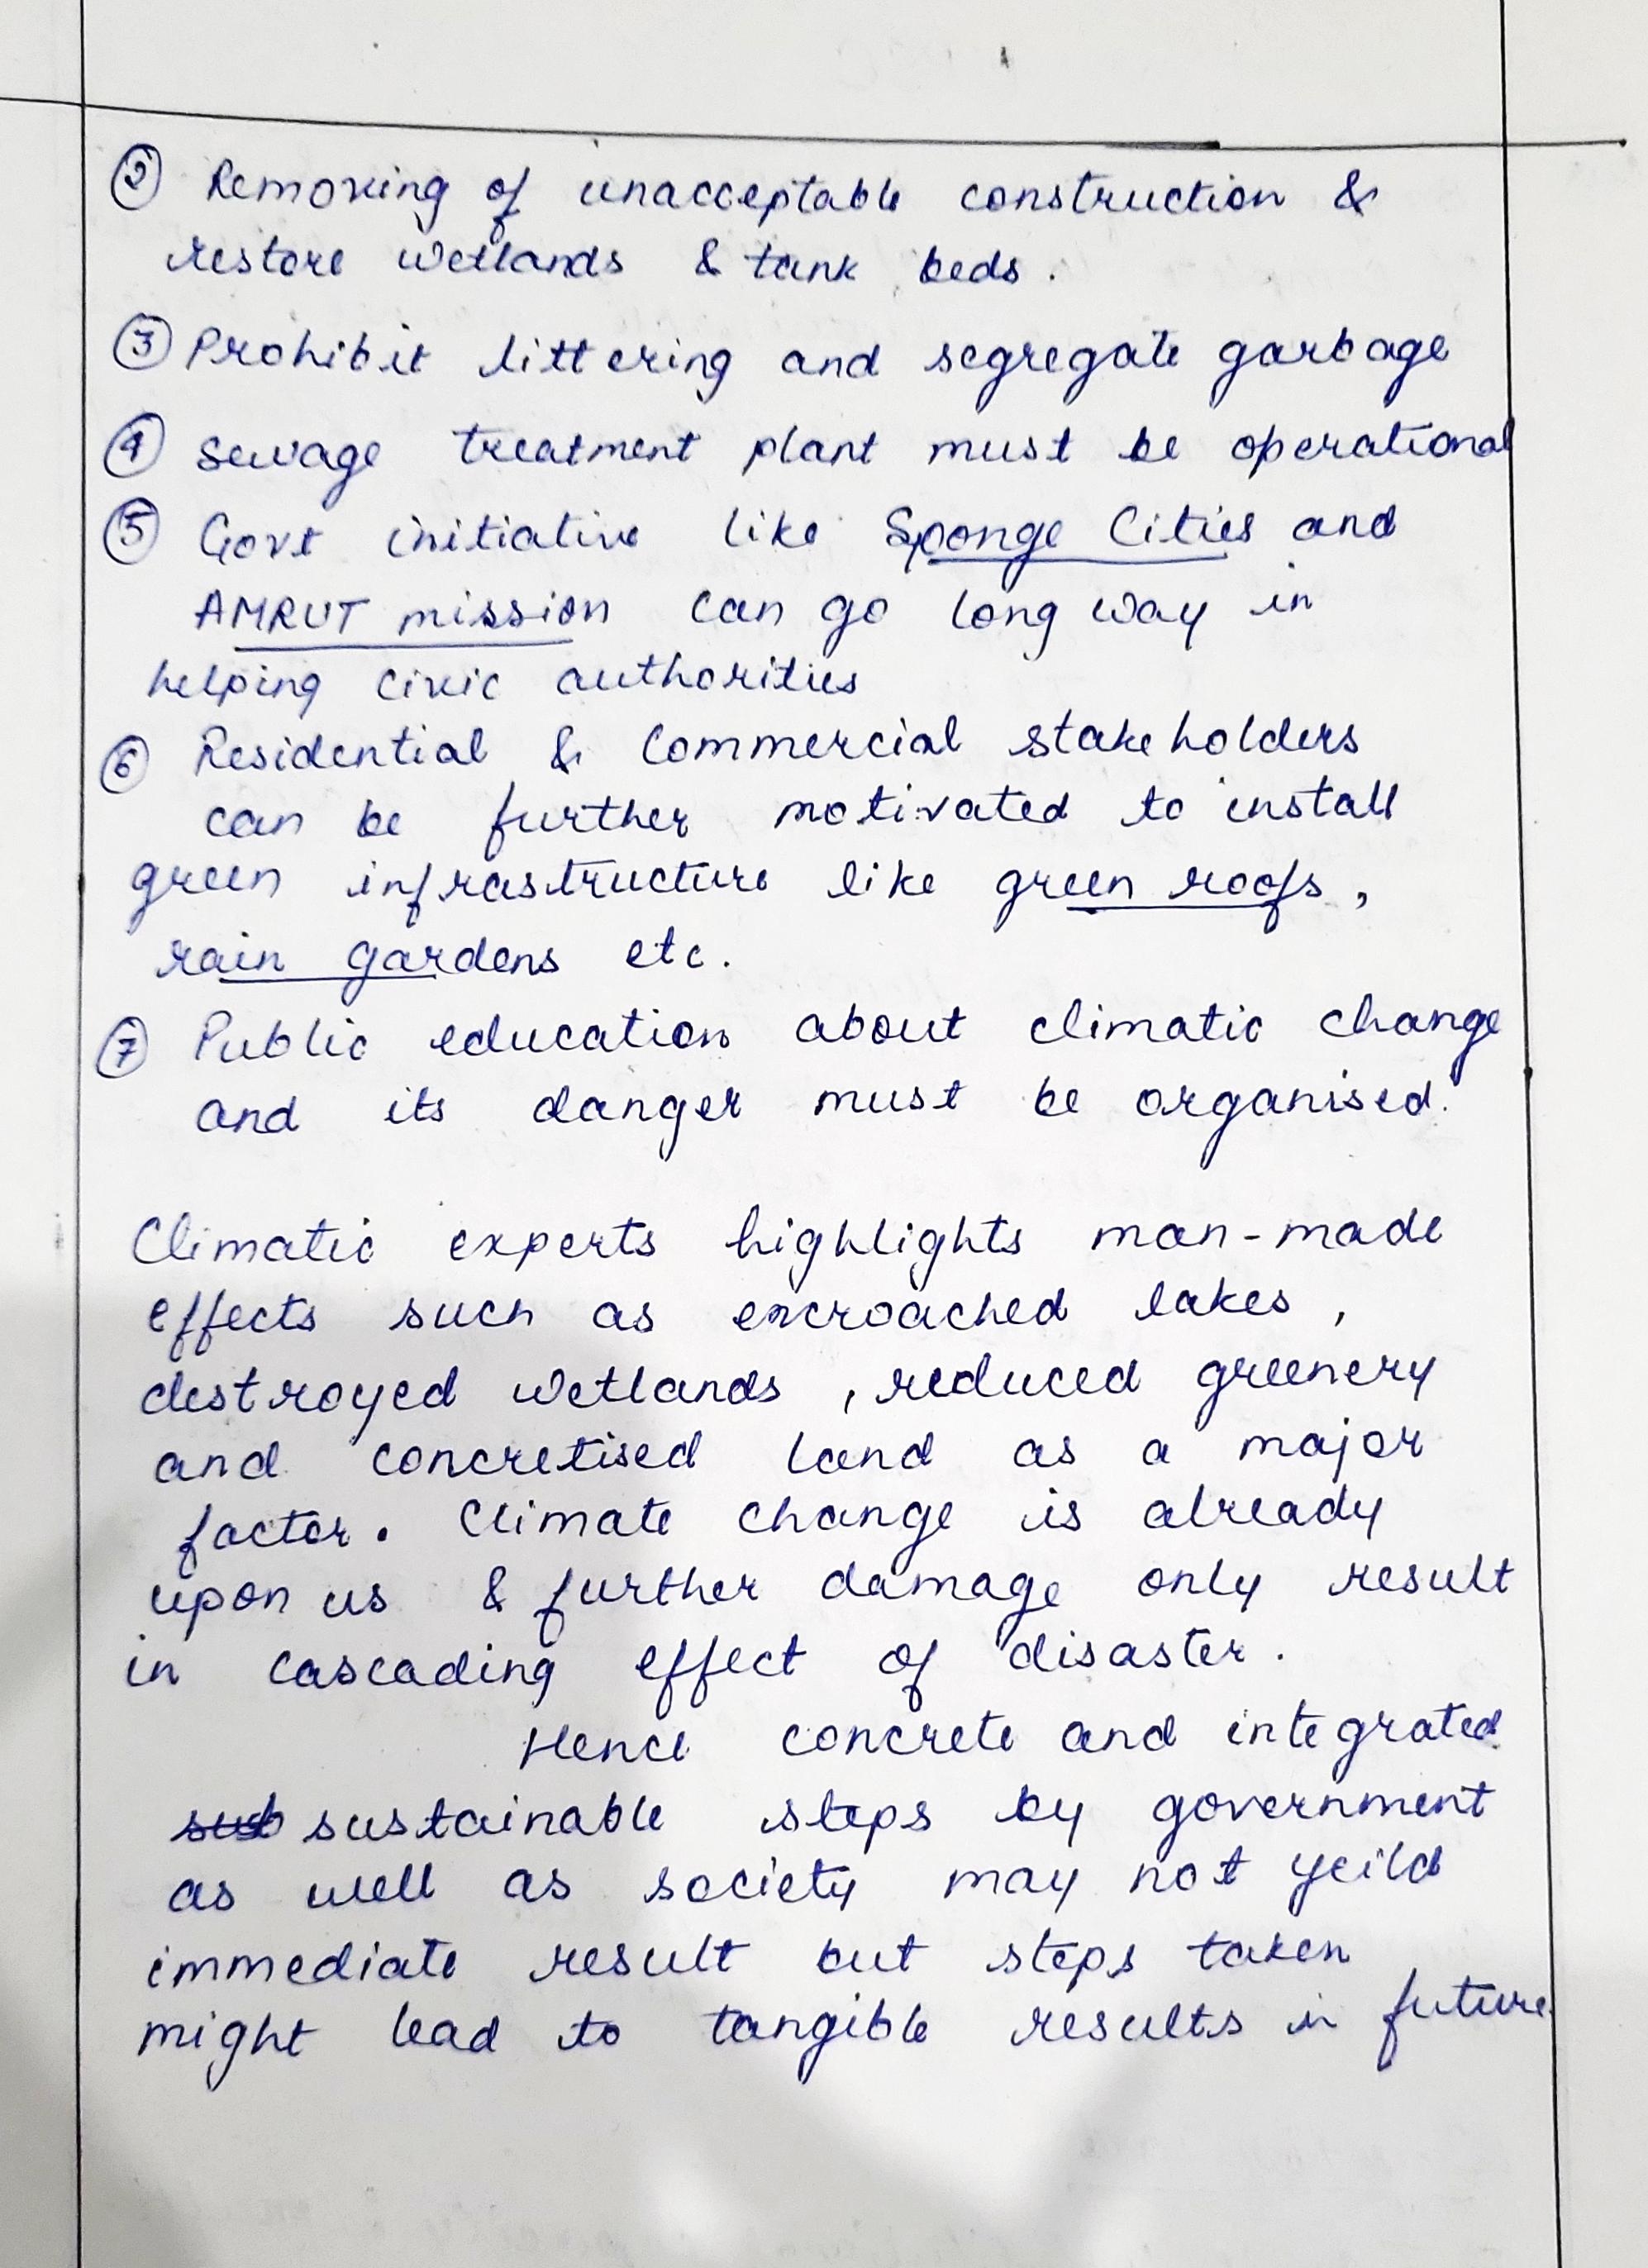 ② Removing of unacceptable construction &
restore wetlands & tank beds.
③ Prohibit littering and segregate garbage
④ sewage treatment plant must be operational
⑤ Govt initiative like Sponge Cities and
AMRUT mission can go long way in
helping civic authorities
⑥ Residential & Commercial stakeholders
can be further motivated to install
green infrastructure like green roofs,
rain gardens etc.
⑦ Public education about climatic change
and its danger must be organised.
Climatic experts highlights man-made
effects such as encroached lakes,
destroyed wetlands, reduced greenery
and concretised land as a major
factor. Climate change is already
upon us & further damage only result
in cascading effect of disaster.
Hence concrete and integrated
sub sustainable steps by government
as well as society may not yeild
immediate result but steps taken
might lead to tangible results in future